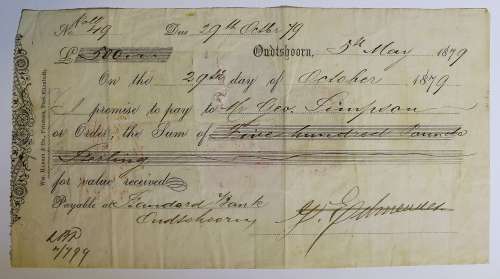 No. 49 Due 29th Octbr 79
£ 500 Oudtshoorn, 5th May 1879
On the 29th day of October 1879
I promise to pay to Mr Geo. Simpson
or Order, the Sum of Five hundred Pounds
Sterling
for value received
Payable at Standard Bank
Oudtshoorn